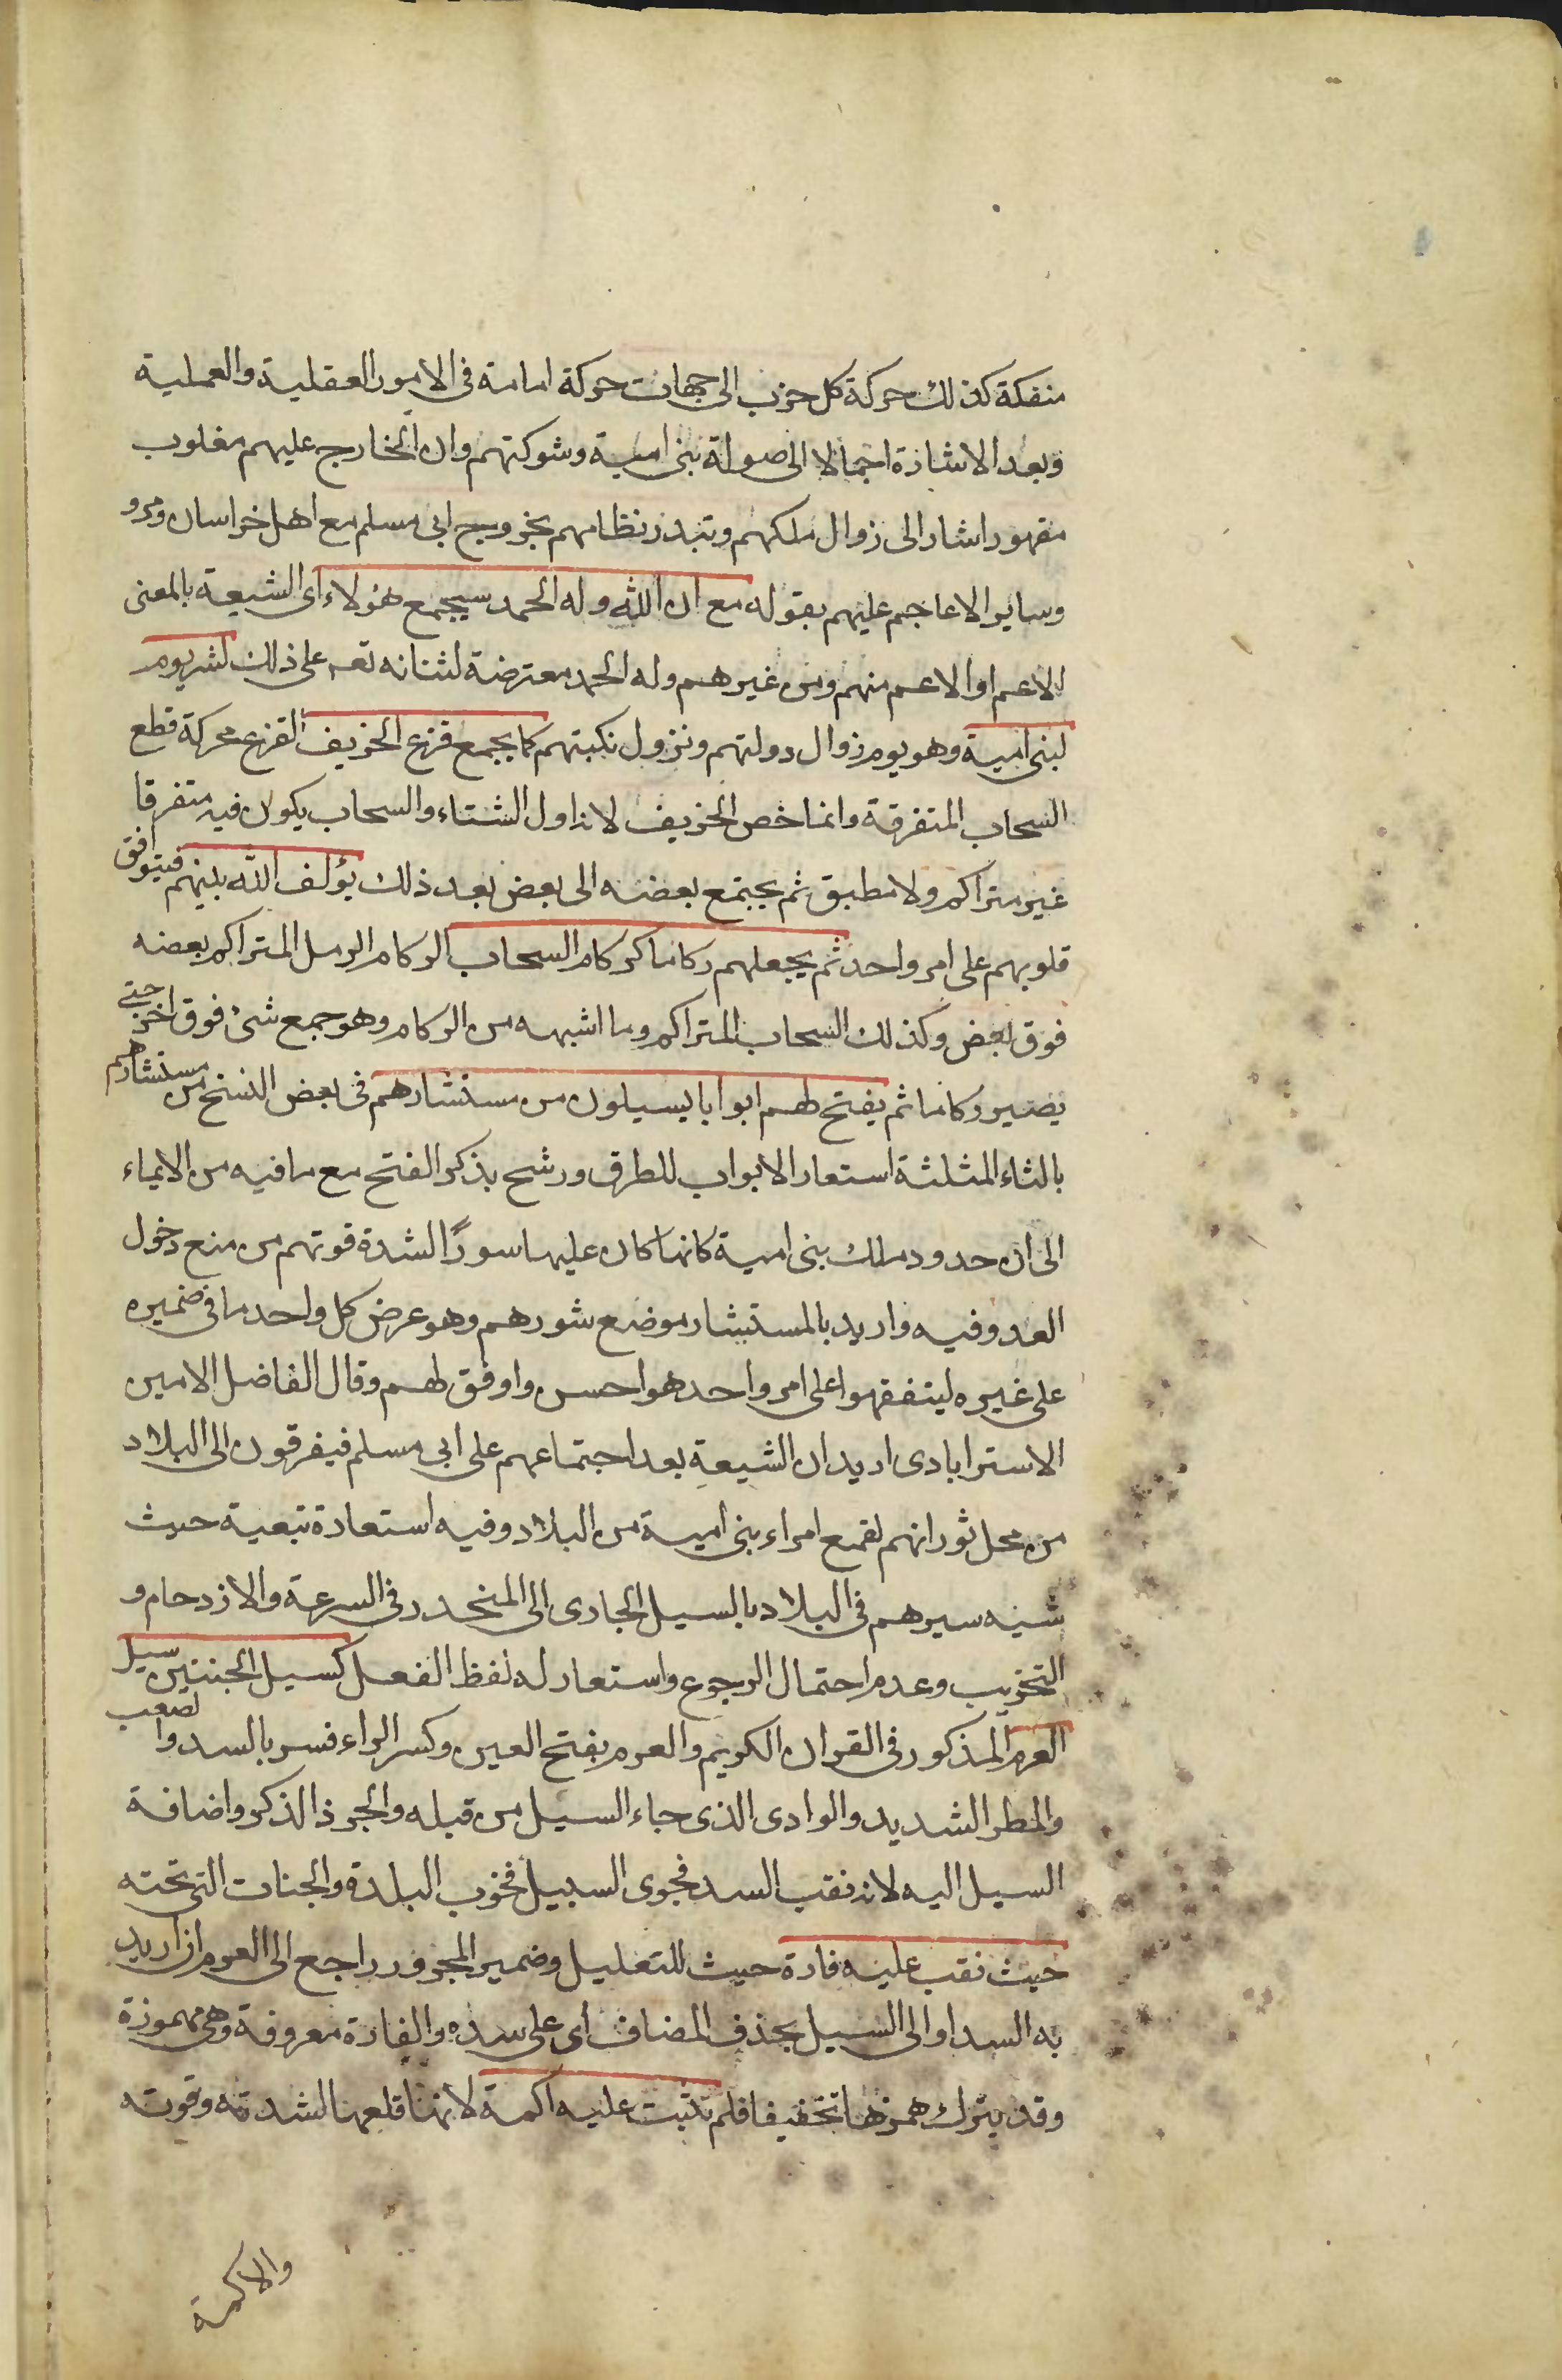 منفكة كذلك حركة كل حزب الى جهات حركة امامة فى الامور العقلية والعملية
وبعد الاشارة اجمالا الى صولة بنى امية وشوكتهم وان الخارج عليهم مغلوب
مقهور اشار الى زوال ملكهم وتبدر نظامهم بخروج ابى مسلم مع اهل خراسان ومرو
وساير الاعاجم عليهم بقوله مع ان الله وله الحمد سيجمع هؤلاء اى الشيعة بالمعنى
الاعم او الاعم منهم ومن غيرهم وله الحمد معترضة لثنائه تعه على ذلك لشر يوم
لبنى امية وهو يوم زوال دولتهم ونزول نكبتهم كما يجمع قزع الخريف القزع محركة قطع
السحاب المتفرقة وانما خص الخريف لانه اول الشتاء والسحاب يكون فيه متفرقا
غير متراكم ولا مطبق ثم يجتمع بعضه الى بعض بعد ذلك يؤلف الله بينهم فيتوافق
قلوبهم على امر واحد ثم يجعلهم ركاما كركام السحاب الركام الرمل المتراكم بعضه
فوق بعض وكذلك السحاب المتراكم وما اشبهه من الركام وهو جمع شئ فوق اخر حتى
يصير ركاما ثم يفتح لهم ابوابا يسيلون من مستشارهم فى بعض النسخ من مستثارهم
بالثاء المثلثة استعار الابواب للطرق ورشح بذكر الفتح مع ما فيه من الايماء
الى ان حدود ملك بنى امية كانها كان عليها سورًا لشدة قوتهم من منع دخول
العدو فيه واريد بالمستشار موضع شورهم وهو عرض كل واحد ما فى ضميره
على غيره ليتفقهوا على امر واحد هو احسن واوفق لهم وقال الفاضل الامين
الاسترابادى اريد ان الشيعة بعد اجتماعهم على ابى مسلم فيفرقون الى البلاد
من محل ثورانهم لقمع امراء بنى امية من البلاد وفيه استعارة تبعية حيث
شبه سيرهم فى البلاد بالسيل الجارى الى المنحدر فى السرعة والازدحام و
التخريب وعدم احتمال الرجوع واستعار له لفظ الفعل كسيل الجنتين سيل
العرم المذكور فى القران الكريم والعرم بفتح العين وكسر الراء فسر بالسد والصعب
والمطر الشديد والوادى الذى جاء السيل من قبله والجرذ الذكر واضافة
السيل اليه لانه نقب السد فجرى السيل فخرب البلدة والجنات التى تحته
حيث نقب عليه فارة حيث للتعليل وضمير المجرور راجع الى العرم ان اريد
به السد او الى السيل بحذف المضاف اى على سده والفارة معروفة وهى مهموزة
وقد يترك همزها تخفيفا فلم تثبت عليه اكمة لانهنا قلعهنا لشدته وقوته
والاكمة